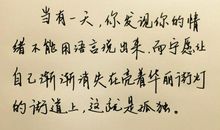 当有一天，你发现你的情
绪不能用语言说出来，而宁愿让
自己渐渐消失在亮着华丽街灯
的街道上，这就是孤独。